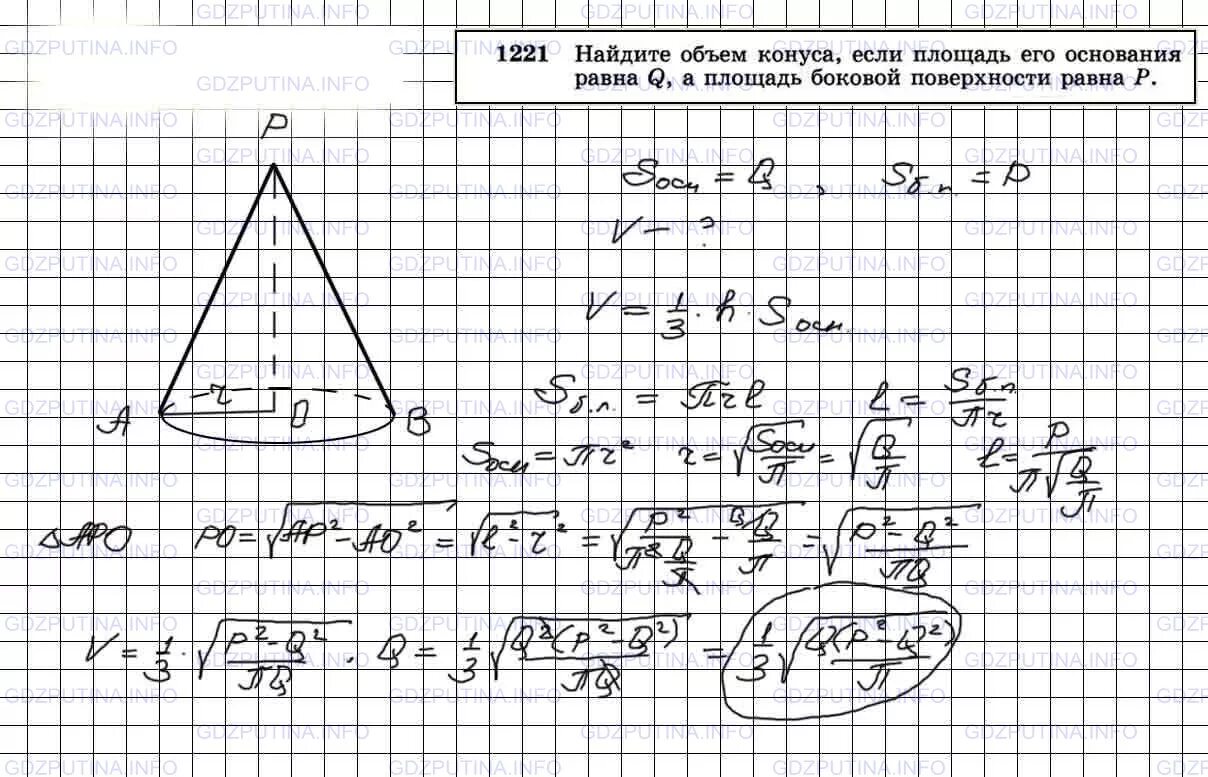 1221 Найдите объем конуса, если площадь его основания
равна Q, а площадь боковой поверхности равна P.
P
Sосн = Q, Sб.п. = P
V — ?
V = 1/3 · h · Sосн.
r
A O B
Sб.п. = πrl l = Sб.п./πr
Sосн = πr² r = √(Sосн/π) = √(Q/π) l = P/(π√(Q/π))
△APO PO = √(AP² - AO²) = √(l² - r²) = √(P²/(π² Q/π) - Q/π) = √((P² - Q²)/(πQ))
V = 1/3 · √((P² - Q²)/(πQ)) · Q = 1/3 √(Q²(P² - Q²)/(πQ)) = 1/3 √(Q(P² - Q²)/π)
GDZPUTINA.INFO